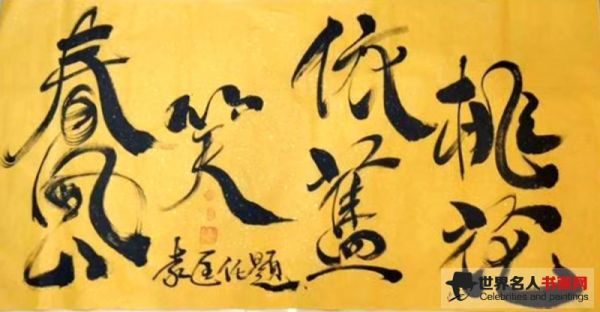 桃花
依舊
笑
春風
題
世界名人书画网
Celebrities and paintings